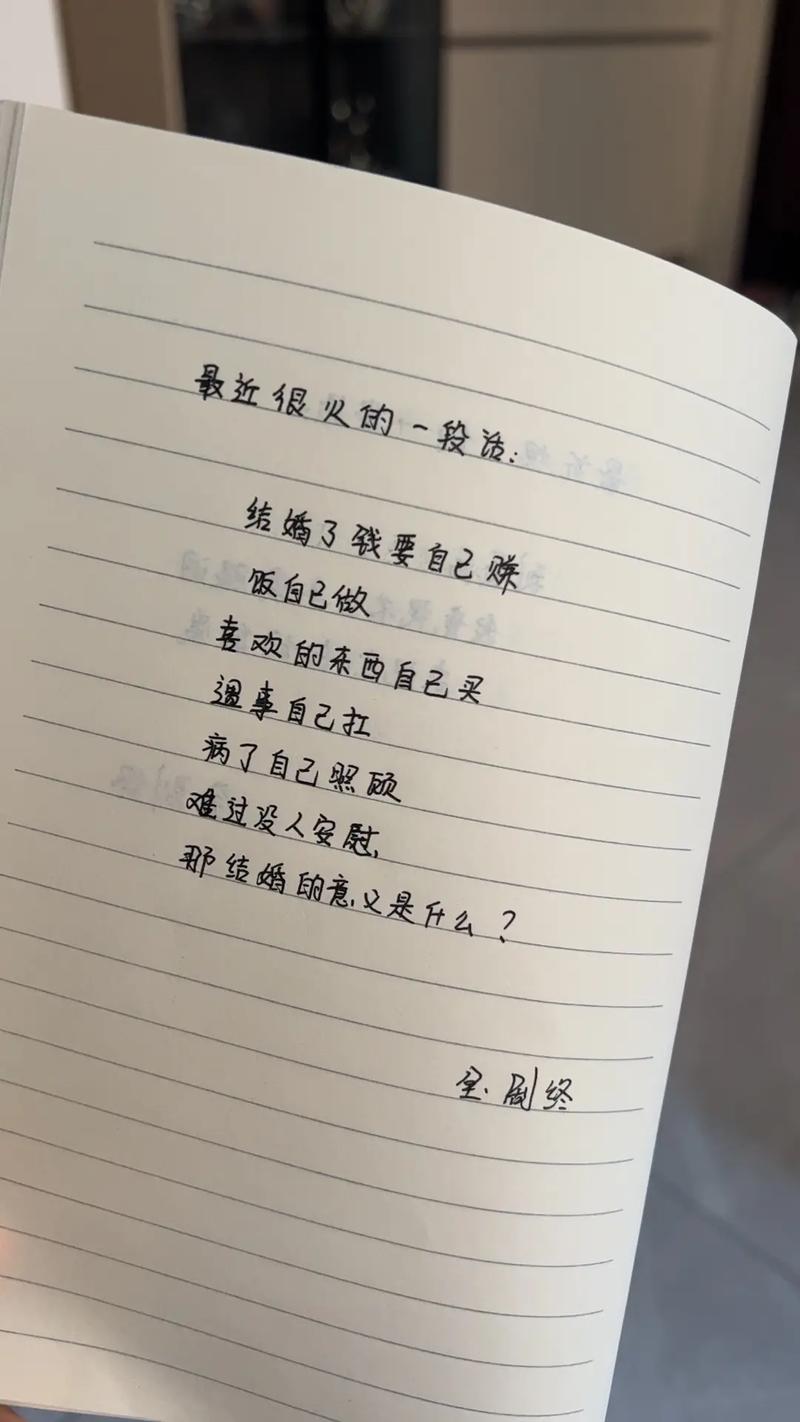 最近很火的一段话:
结婚了钱要自己赚
饭自己做
喜欢的东西自己买
遇事自己扛
病了自己照顾
难过没人安慰,
那结婚的意义是什么?
全.剧终